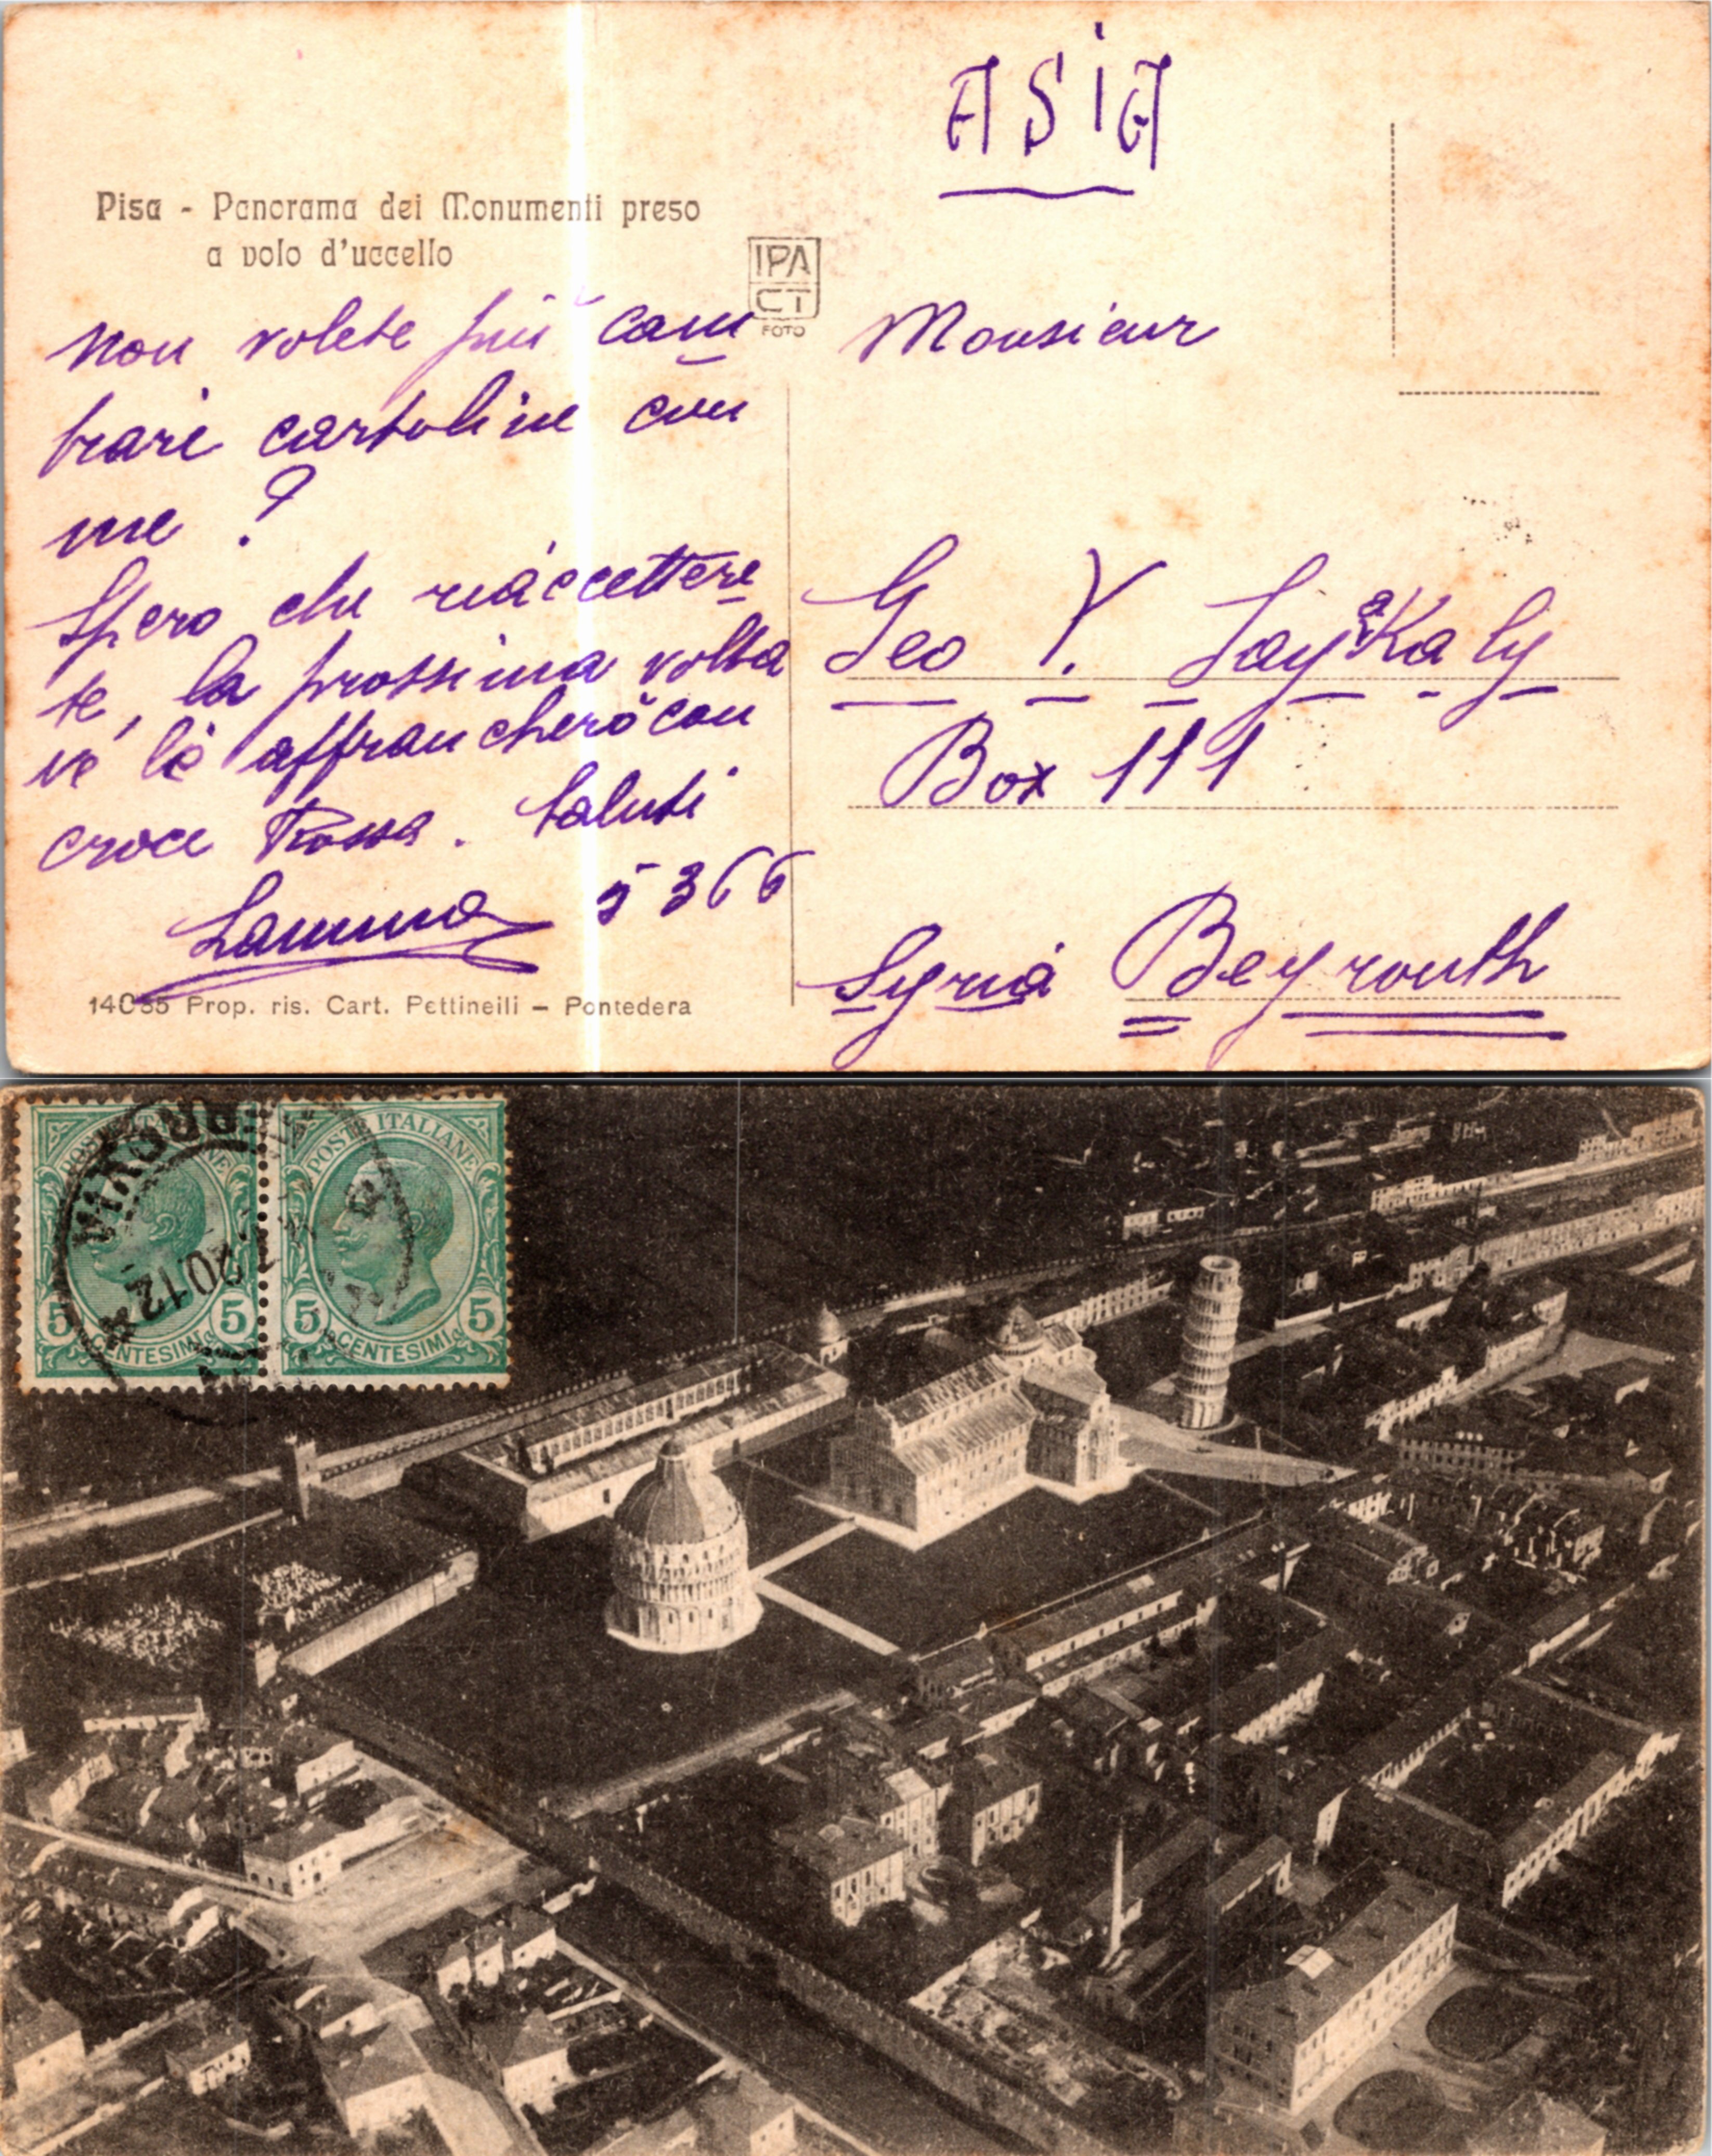 ASiA
Pisa - Panorama dei Monumenti preso
a volo d'uccello
IPA
CT
FOTO
Non volete più cam
biare cartoline con
me ?
Spero che riaccettere
te, la prossima volta
ve le affrancherò con
croce Rossa. Saluti
5366
14035 Prop. ris. Cart. Pettinelli – Pontedera
Monsieur
Geo Y.
Box 111
Syria Beyrouth
POSTE ITALIANE
POSTE ITALIANE
5 CENTESIMI 5
5 CENTESIMI 5
20.12